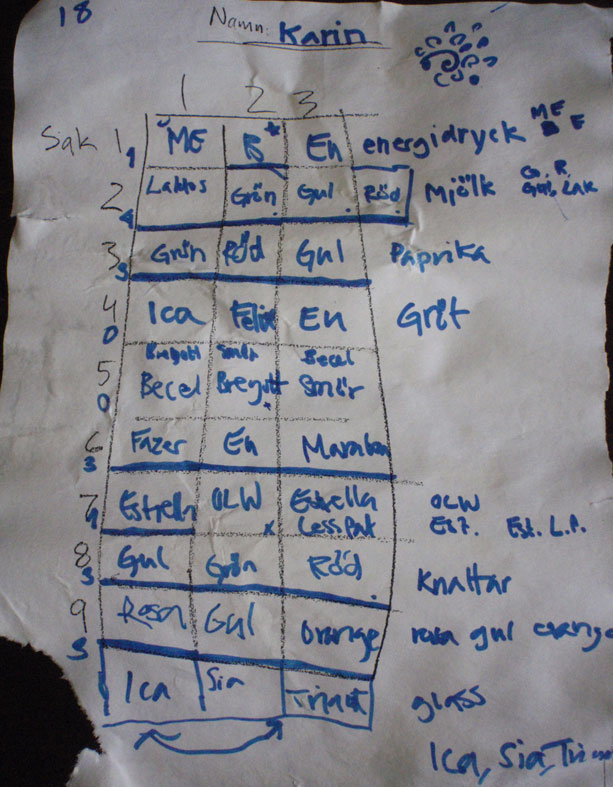 18
Namn: Karin
1 2 3
Sak 1 1 ME R* En energidryck ME E
2 4 Laktos Grön Gul Röd Mjölk G. R. Gul, Lak
3 3 Grön Röd Gul Paprika
4 0 Ica Felix En Gröt
Bregott Smör Becel
5 0 Becel Bregott Smör
6 3 Fazer En Marabou
7 1 Estrella OLW Estrella OLW
x Less Fat Est. Est. L.F.
8 3 Gul Grön Röd Knaltar
9 3 Rosa Gul Orange rosa gul orange
Ica Sia Triumf glass
Ica, Sia, Trium